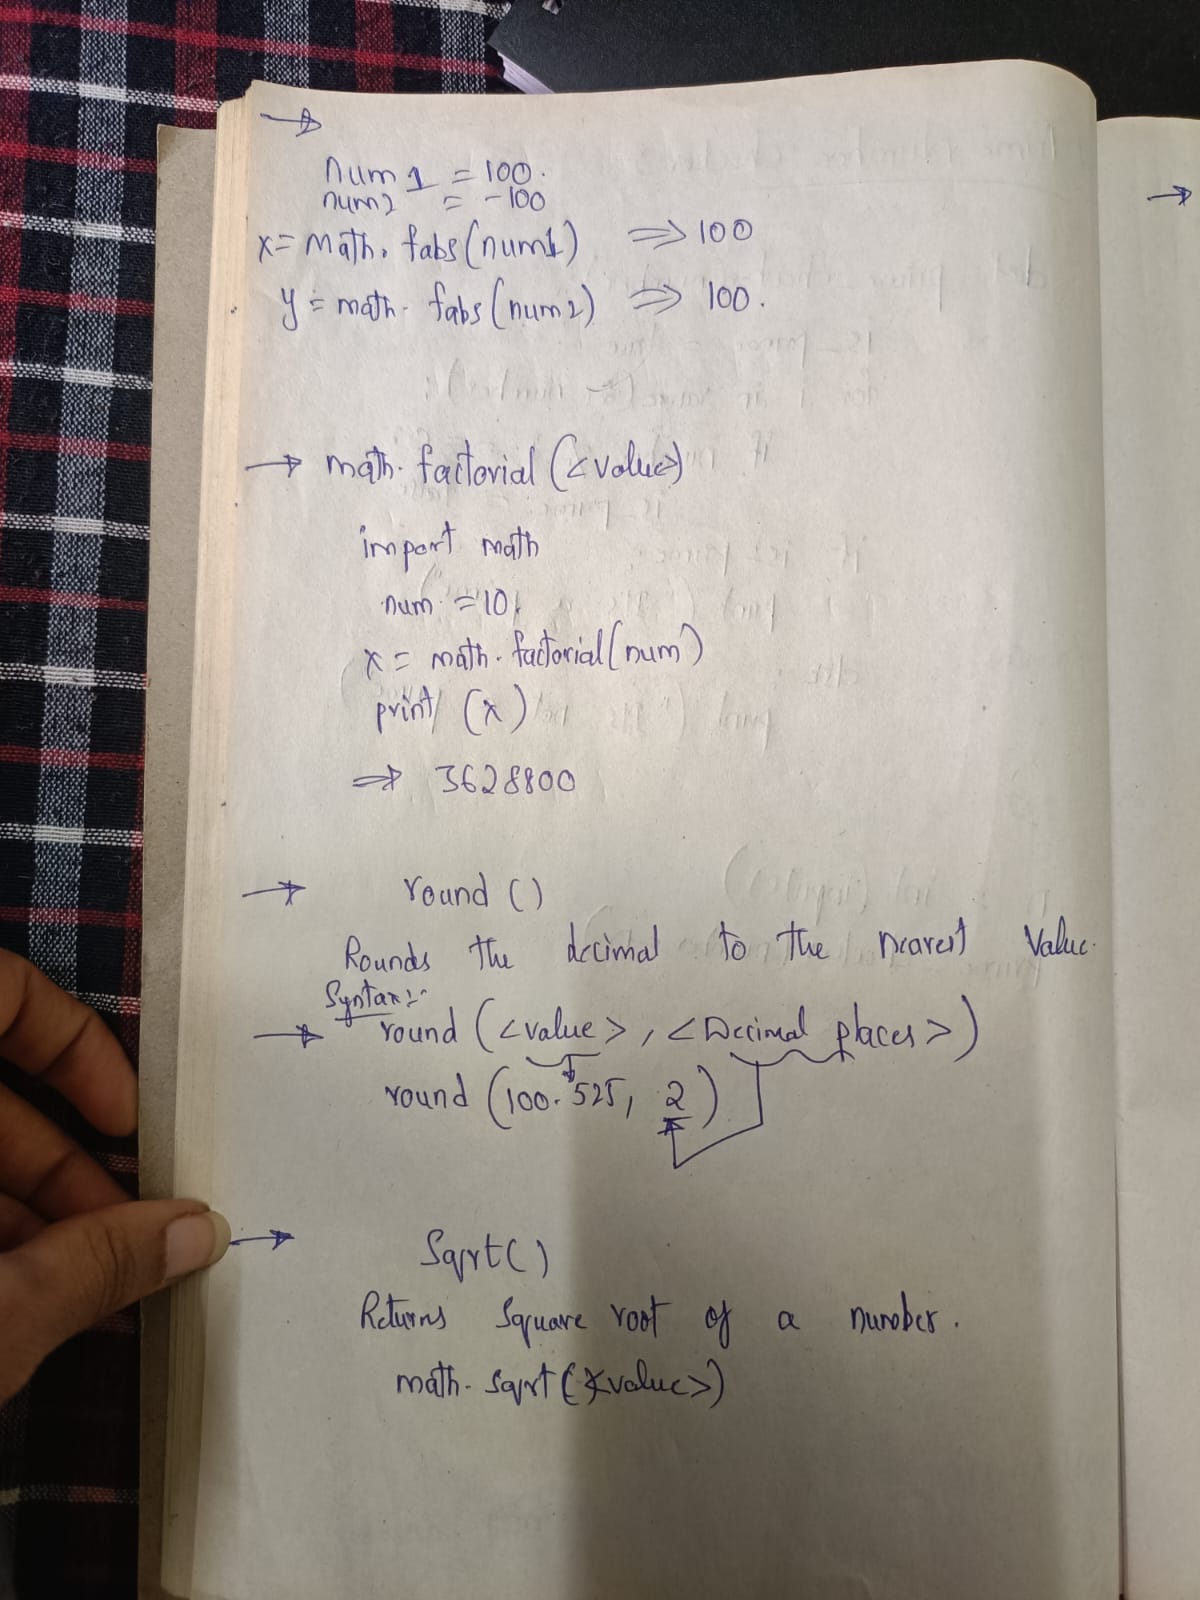 →
num1 = 100.
num2 = -100
x = math. fabs(num1) ⇒ 100
y = math. fabs(num2) ⇒ 100.
→ math. factorial (<value>)
import math
num = 10
x = math. factorial(num)
print (x)
⇒ 3628800
→ round ()
Rounds the decimal to the nearest value.
Syntax:-
→ round (<value>, <Decimal places>)
round (100.525, 2)
→ Sqrt()
Returns square root of a number.
math. sqrt (<value>)
→